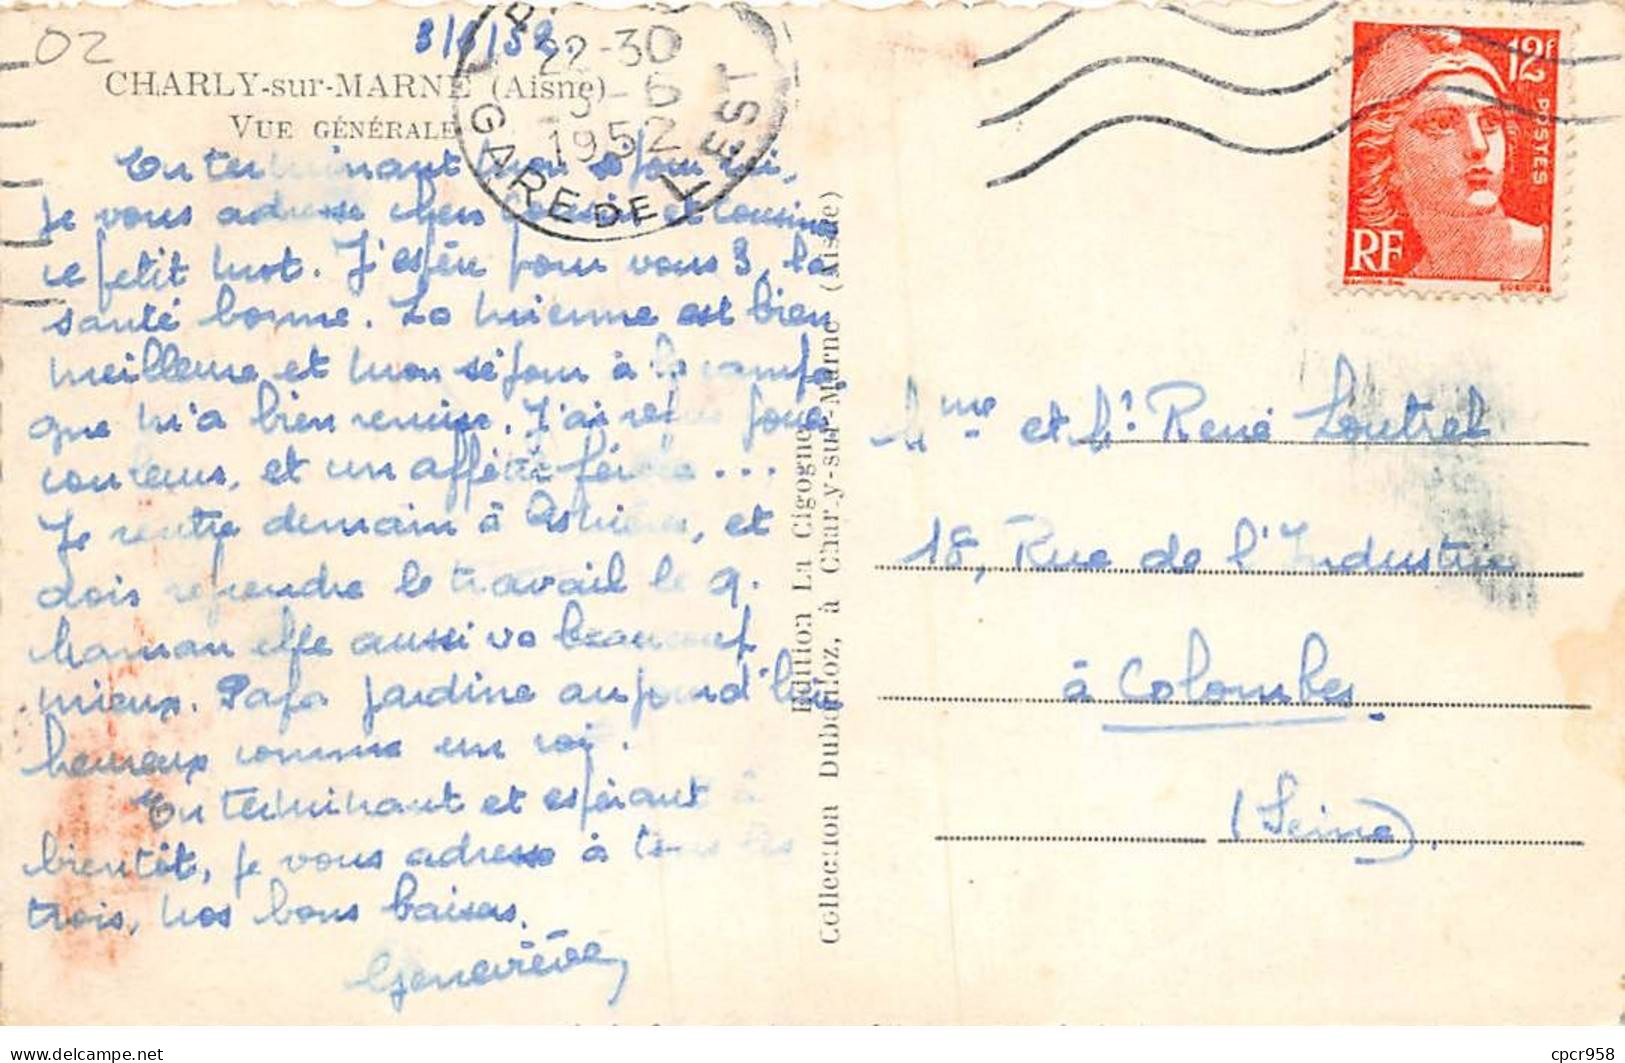 02
8/6/52.
CHARLY-sur-MARNE (Aisne)
VUE GÉNÉRALE
22-30
1952
GARE DE L'EST
12F
POSTES
RF
En terminant mon séjour ici,
je vous adresse chers Cousin et Cousine
ce petit mot. J'espère pour vous 3, la
santé bonne. La mienne est bien
meilleure et mon séjour à la campa
gne m'a bien remise. J'ai repris
couleurs, et un appétit féroce ...
Je rentre demain à Asnières, et
dois reprendre le travail le 9.
Maman elle aussi va beaucoup
mieux. Papa jardine aujourd'hui
heureux comme un roi.
En terminant et espérant à
bientôt, je vous adresse à tous les
trois, nos bons baisers.
Geneviève
Edition La Cigogne
Collection Duberiloz, à Charly-sur-Marne (Aisne)
Mme et Mr René Loutrel
18, Rue de l'Industrie
à Colombes.
(Seine).
cpcr958